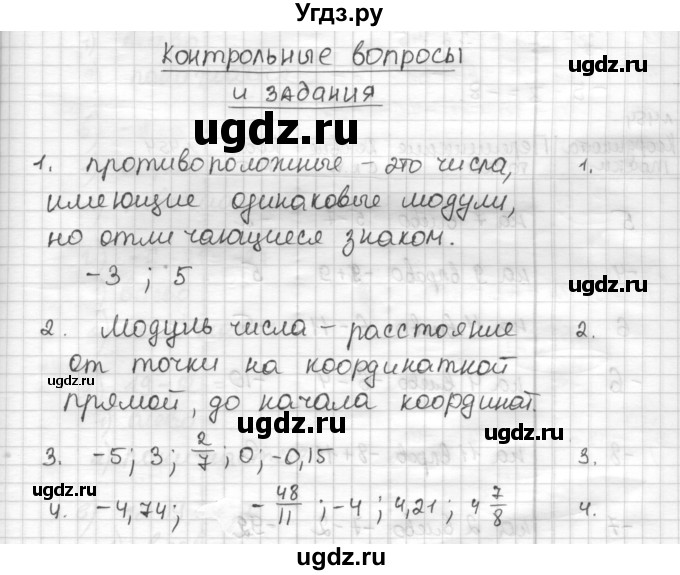 Угдз.ру
Контрольные вопросы
и задания
ugdz.ru
ugdz.ru
1. противоположные – это числа, 1.
имеющие одинаковые модули,
но отличающиеся знаком.
ugdz.ru
ugdz.ru
-3 ; 5
2. Модуль числа – расстояние 2.
ugdz.ru
от точки на координатной
прямой, до начала координат.
ugdz.ru
ugdz.ru
3. -5; 3; 2/7; 0; -0,15 3.
ugdz.ru
4. -4,74; -48/11; -4; 4,21; 4 7/8 4.
ugdz.ru
ugdz.ru